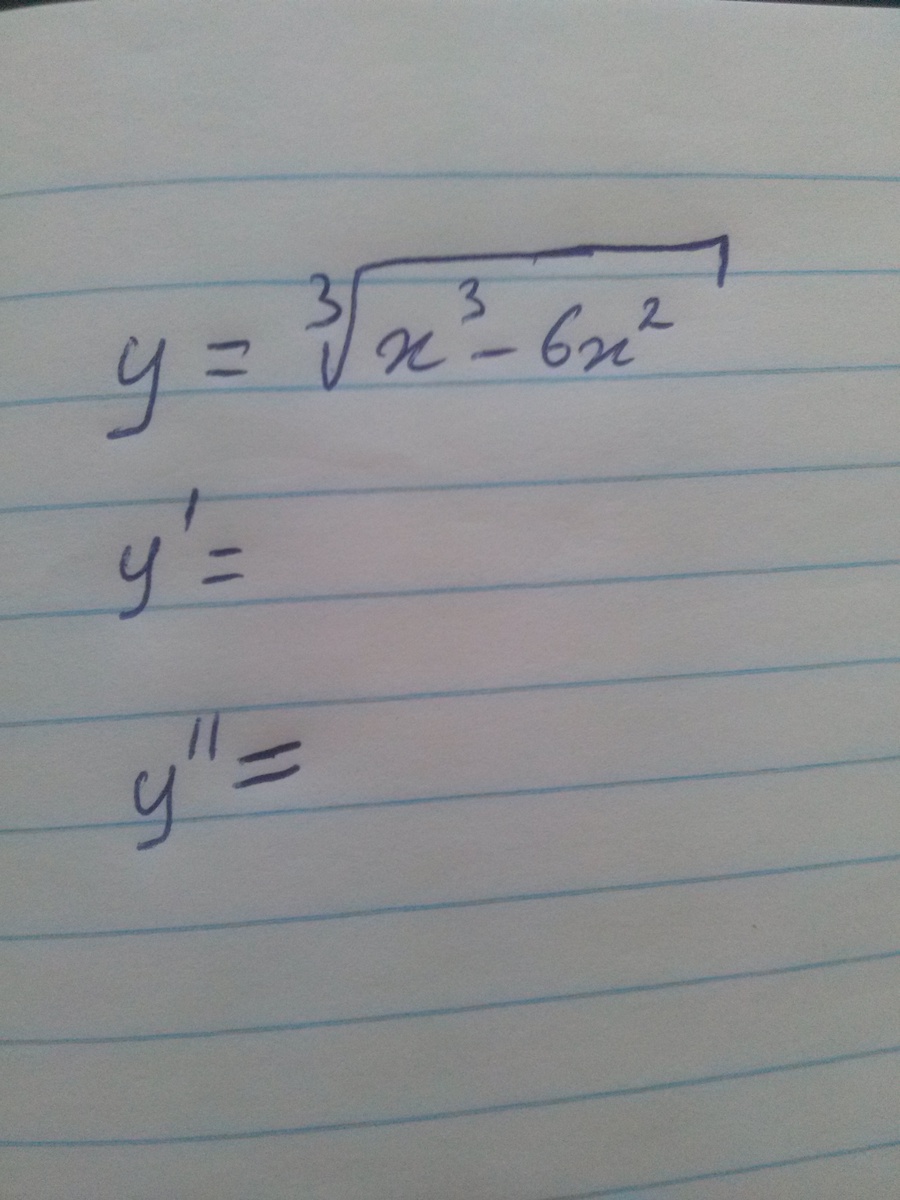 y = ∛(x³ - 6x²)
y' =
y'' =